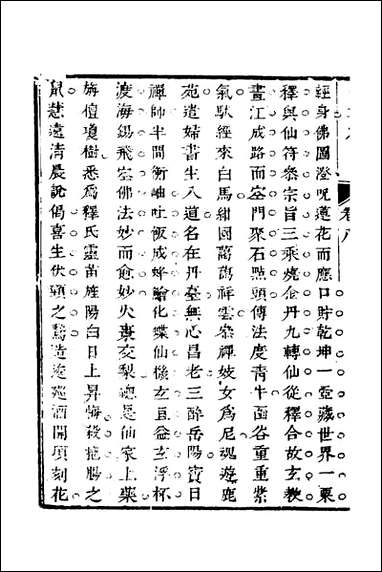 輕身佛圖澄呪蓮花而應口貯乾坤一壺藏世界一粟
釋與仙符衆宗旨三乘燒金丹九轉仙從釋合故玄教
畫江成路而空門聚石點頭傳法度靑牛函谷重重紫
氣馱經來白馬紺園藹藹祥雲叅禪妓女爲尼魂遊鹿
苑造婦書生入道名在丹臺無心昌老三醉岳陽寳日
禪師半間衡岫吐飯成蜂噀化蝶仙機玄且益玄浮杯
渡海錫飛空佛法妙而愈妙火棗交梨總是仙家上藥
旃檀瓊樹悉爲釋氏靈苗旌陽白日上昇悔殺拖腸之
鼠慧遠清晨說偈喜生伏頭之鵞造逡巡酒開頃刻花
卷八